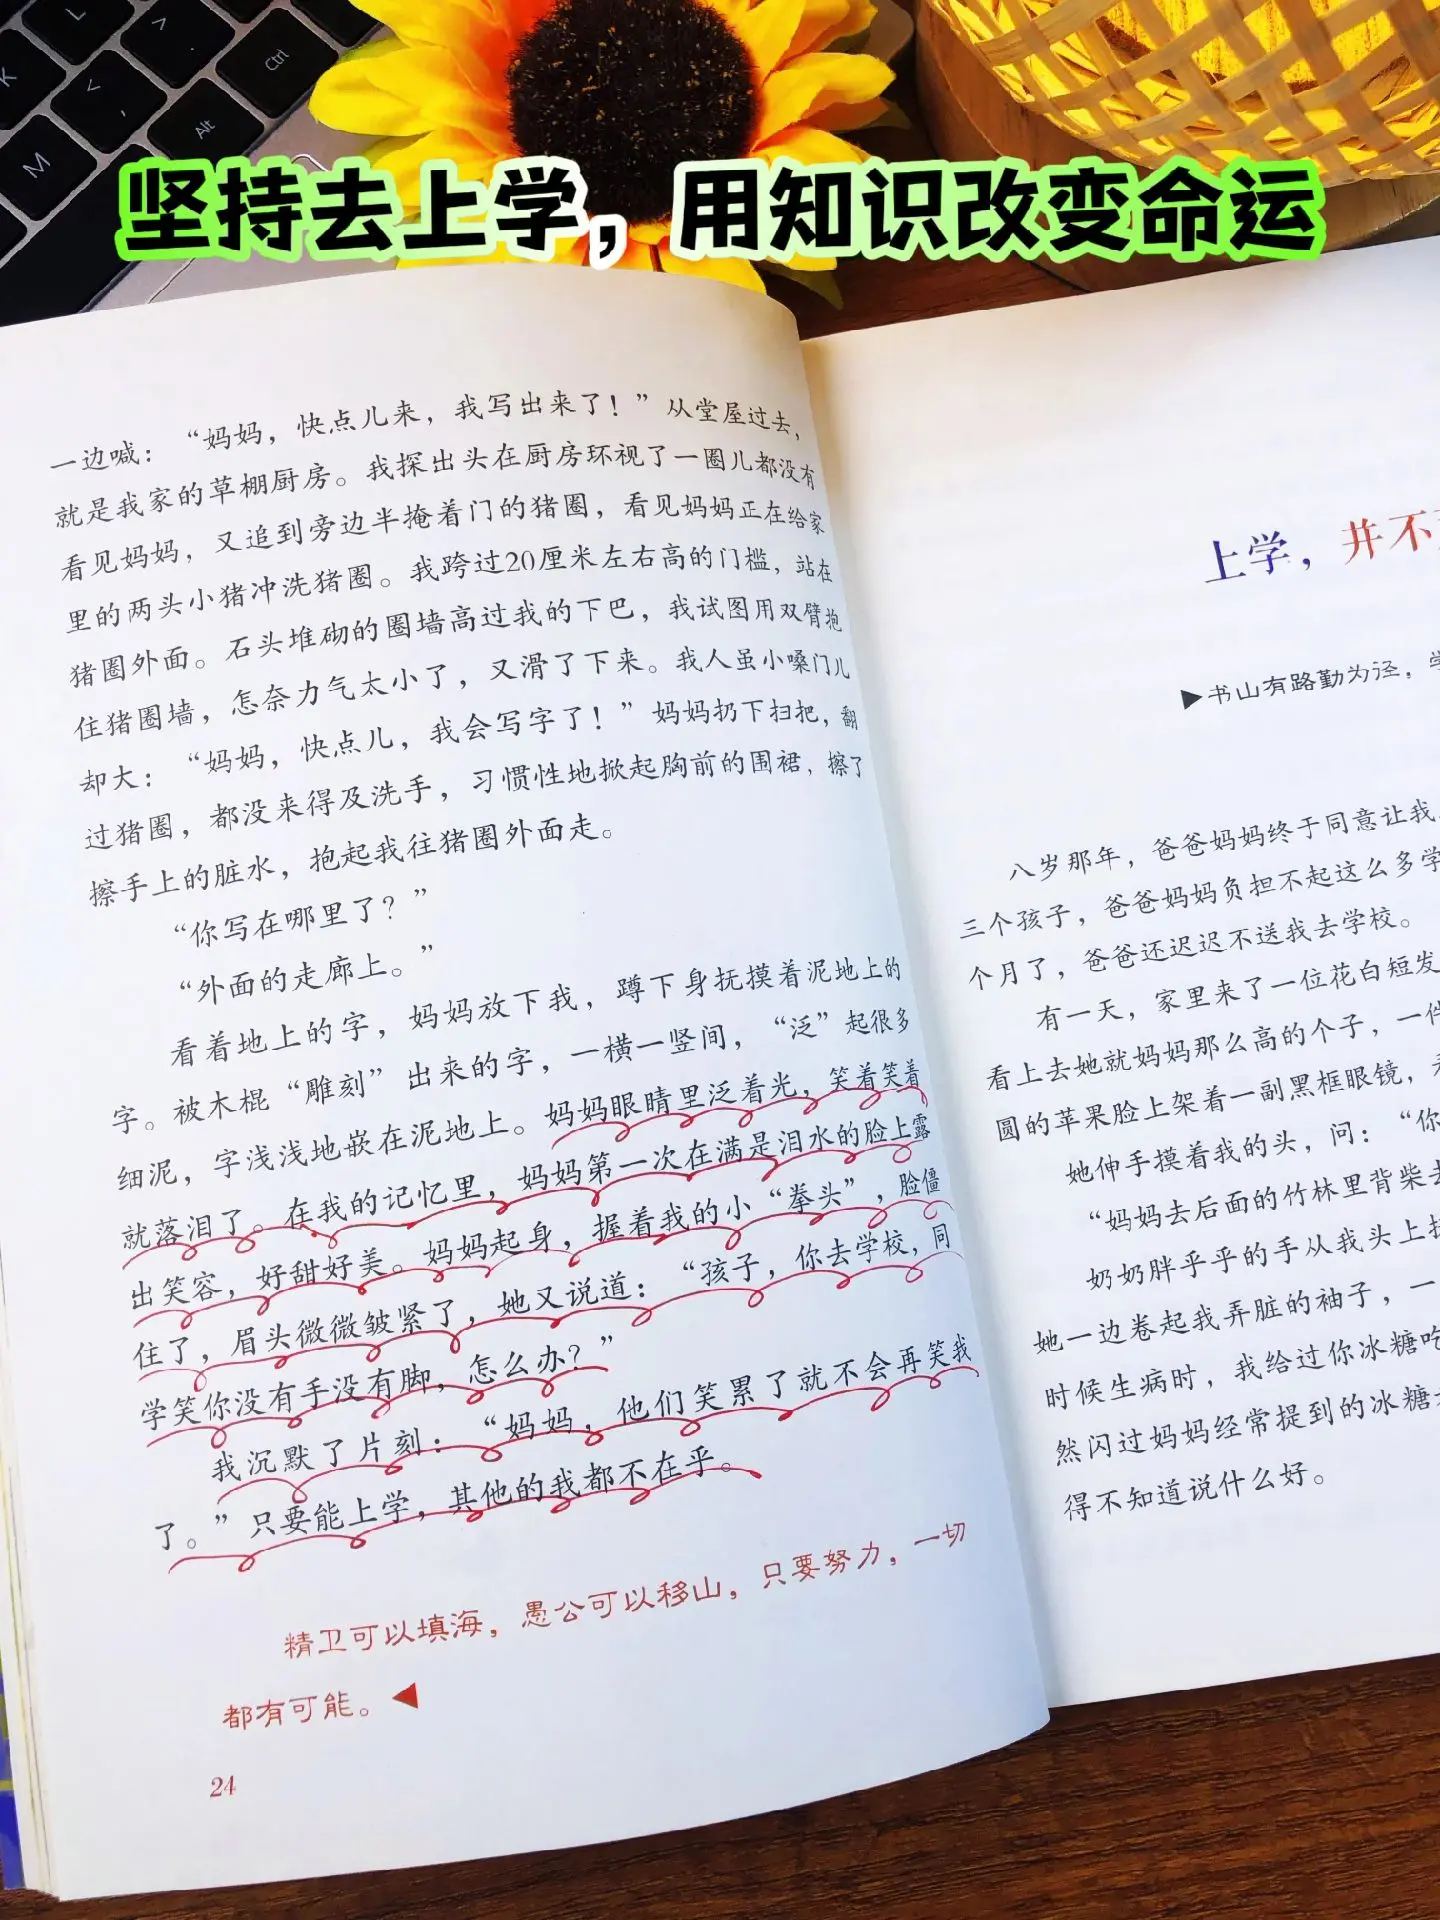 L
K
Ctrl
Alt
M
坚持去上学，用知识改变命运
一边喊：“妈妈，快点儿来，我写出来了！”从堂屋过去，
就是我家的草棚厨房。我探出头在厨房环视了一圈儿都没有
看见妈妈，又追到旁边半掩着门的猪圈，看见妈妈正在给家
里的两头小猪冲洗猪圈。我跨过20厘米左右高的门槛，站在
猪圈外面。石头堆砌的圈墙高过我的下巴，我试图用双臂抱
住猪圈墙，怎奈力气太小了，又滑了下来。我人虽小嗓门儿
却大：“妈妈，快点儿，我会写字了！”妈妈扔下扫把，翻
过猪圈，都没来得及洗手，习惯性地掀起胸前的围裙，擦了
擦手上的脏水，抱起我往猪圈外面走。
“你写在哪里了？”
“外面的走廊上。”
看着地上的字，妈妈放下我，蹲下身抚摸着泥地上的
字。被木棍“雕刻”出来的字，一横一竖间，“泛”起很多
细泥，字浅浅地嵌在泥地上。妈妈眼睛里泛着光，笑着笑着
就落泪了。在我的记忆里，妈妈第一次在满是泪水的脸上露
出笑容，好甜好美。妈妈起身，握着我的小“拳头”，脸僵
住了，眉头微微皱紧了，她又说道：“孩子，你去学校，同
学笑你没有手没有脚，怎么办？”
我沉默了片刻：“妈妈，他们笑累了就不会再笑我
了。”只要能上学，其他的我都不在乎。
精卫可以填海，愚公可以移山，只要努力，一切
都有可能。◀
24
上学，并不
▶书山有路勤为径，学
八岁那年，爸爸妈妈终于同意让我
三个孩子，爸爸妈妈负担不起这么多学
个月了，爸爸还迟迟不送我去学校。
有一天，家里来了一位花白短发
看上去她就妈妈那么高的个子，一件
圆的苹果脸上架着一副黑框眼镜，
她伸手摸着我的头，问：“你
“妈妈去后面的竹林里背柴去
奶奶胖乎乎的手从我头上
她一边卷起我弄脏的袖子，一
时候生病时，我给过你冰糖吃
然闪过妈妈经常提到的冰糖
得不知道说什么好。